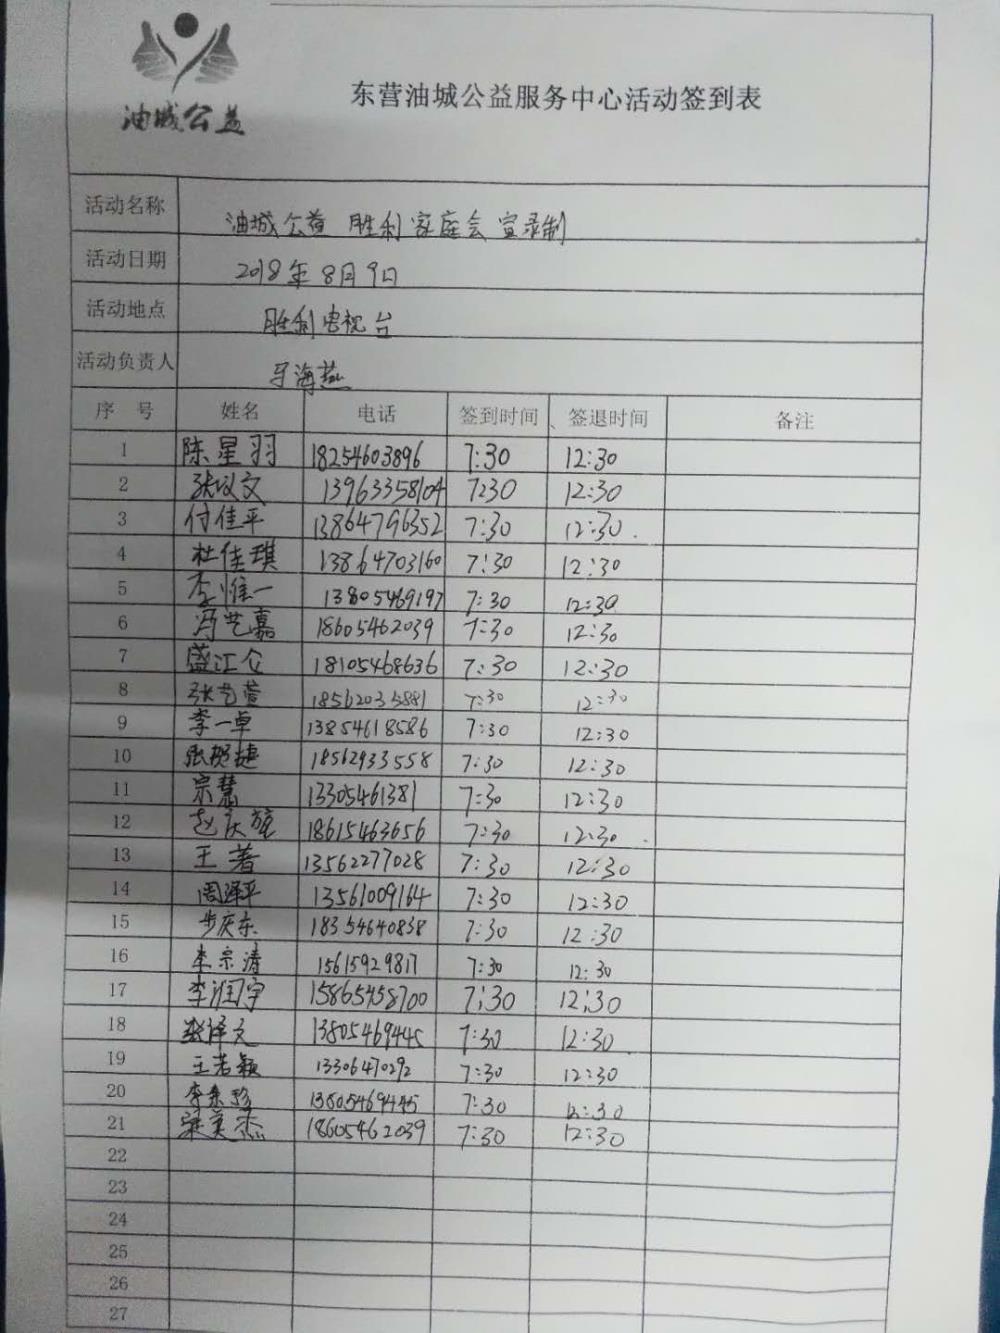 油城公益
东营油城公益服务中心活动签到表
活动名称 油城公益 胜利家庭会室录制
活动日期 2018年8月9日
活动地点 胜利电视台
活动负责人 海燕
序 号 姓名 电话 签到时间 签退时间 备注
1 陈星羽 18254603896 7:30 12:30
2 张议文 13963358104 7:30 12:30
3 付佳平 13864796352 7:30 12:30
4 杜佳琪 13864703160 7:30 12:30
5 李惟一 13805469197 7:30 12:30
6 冯艺嘉 18605462039 7:30 12:30
7 盛江仑 18105468636 7:30 12:30
8 张艺萱 18562035881 7:30 12:30
9 李一卓 13854618586 7:30 12:30
10 张恩捷 18562933558 7:30 12:30
11 宗慧 13305461381 7:30 12:30
12 赵庆 18615463656 7:30 12:30
13 王著 13562277028 7:30 12:30
14 周泽平 13561009164 7:30 12:30
15 步庆东 18354640838 7:30 12:30
16 李宗涛 15615929817 7:30 12:30
17 李润宇 15865458700 7:30 12:30
18 张译文 13805469445 7:30 12:30
19 王若颖 13306470292 7:30 12:30
20 李东珍 13805469445 7:30 12:30
21 梁美杰 18605462039 7:30 12:30
22
23
24
25
26
27